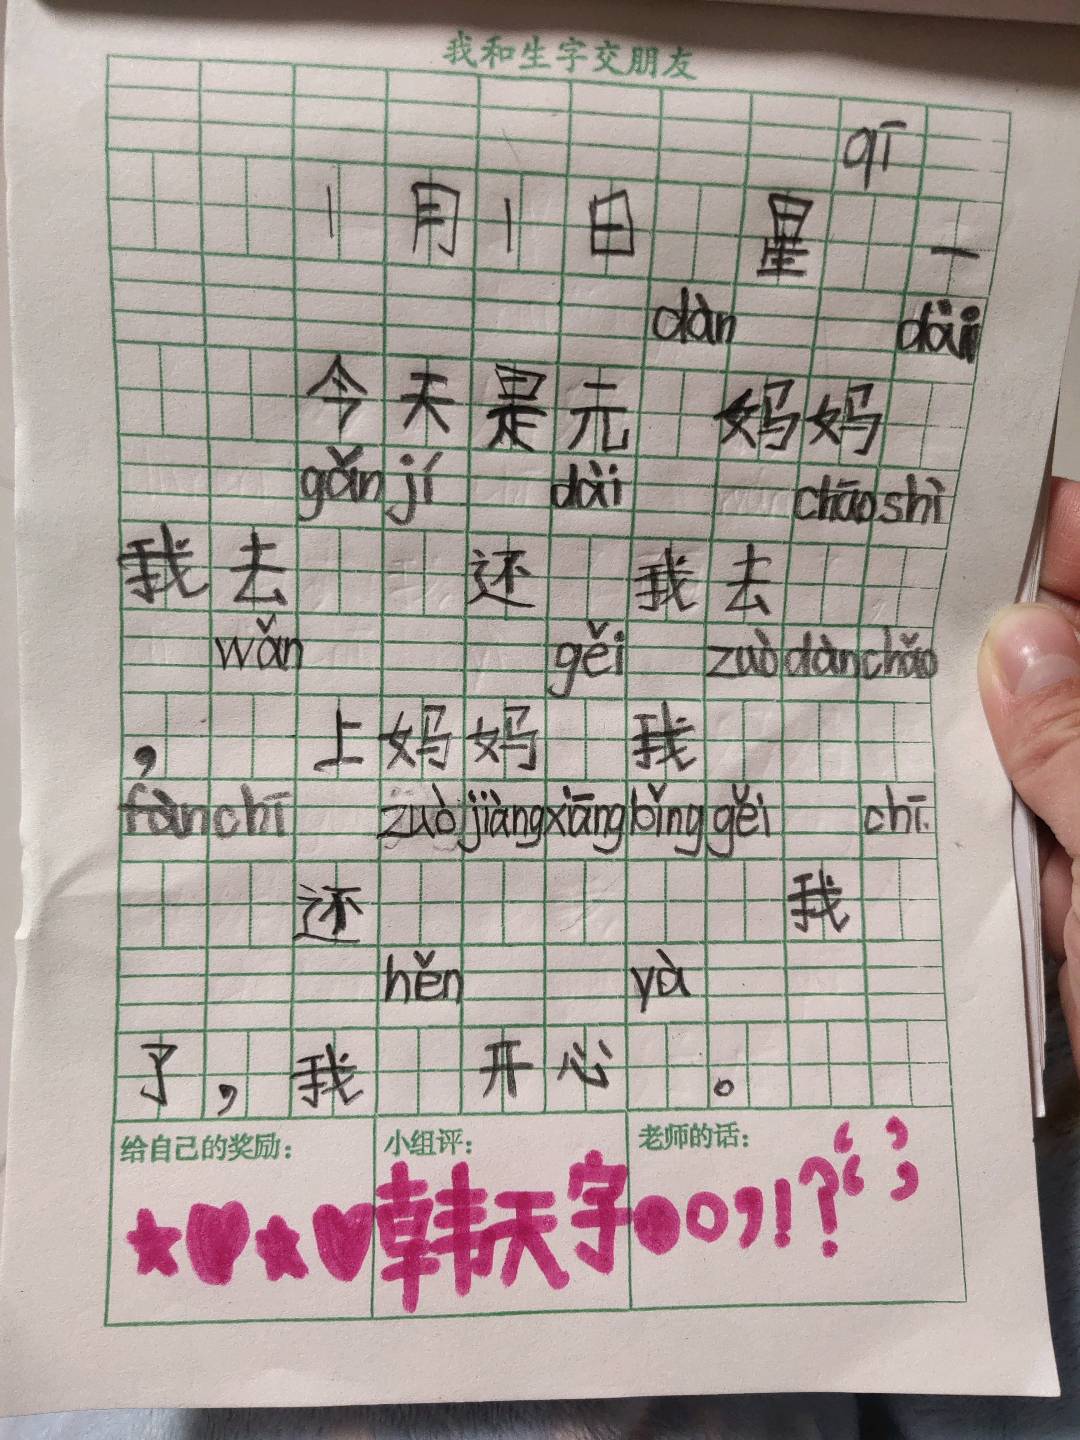 我和生字交朋友
qī
1月1日 星 一
dàn dài
今天是元 妈妈
gǎn jí dài chāo shì
我去 还 我去
wǎn gěi zuò dàn chǎo
, 上妈妈 我
fàn chī zuò jiàng xiāng bǐng gěi chī
还 我
hěn yà
了,我 开心 。
给自己的奖励: 小组评: 老师的话:
韩天字 。,!?“ ”